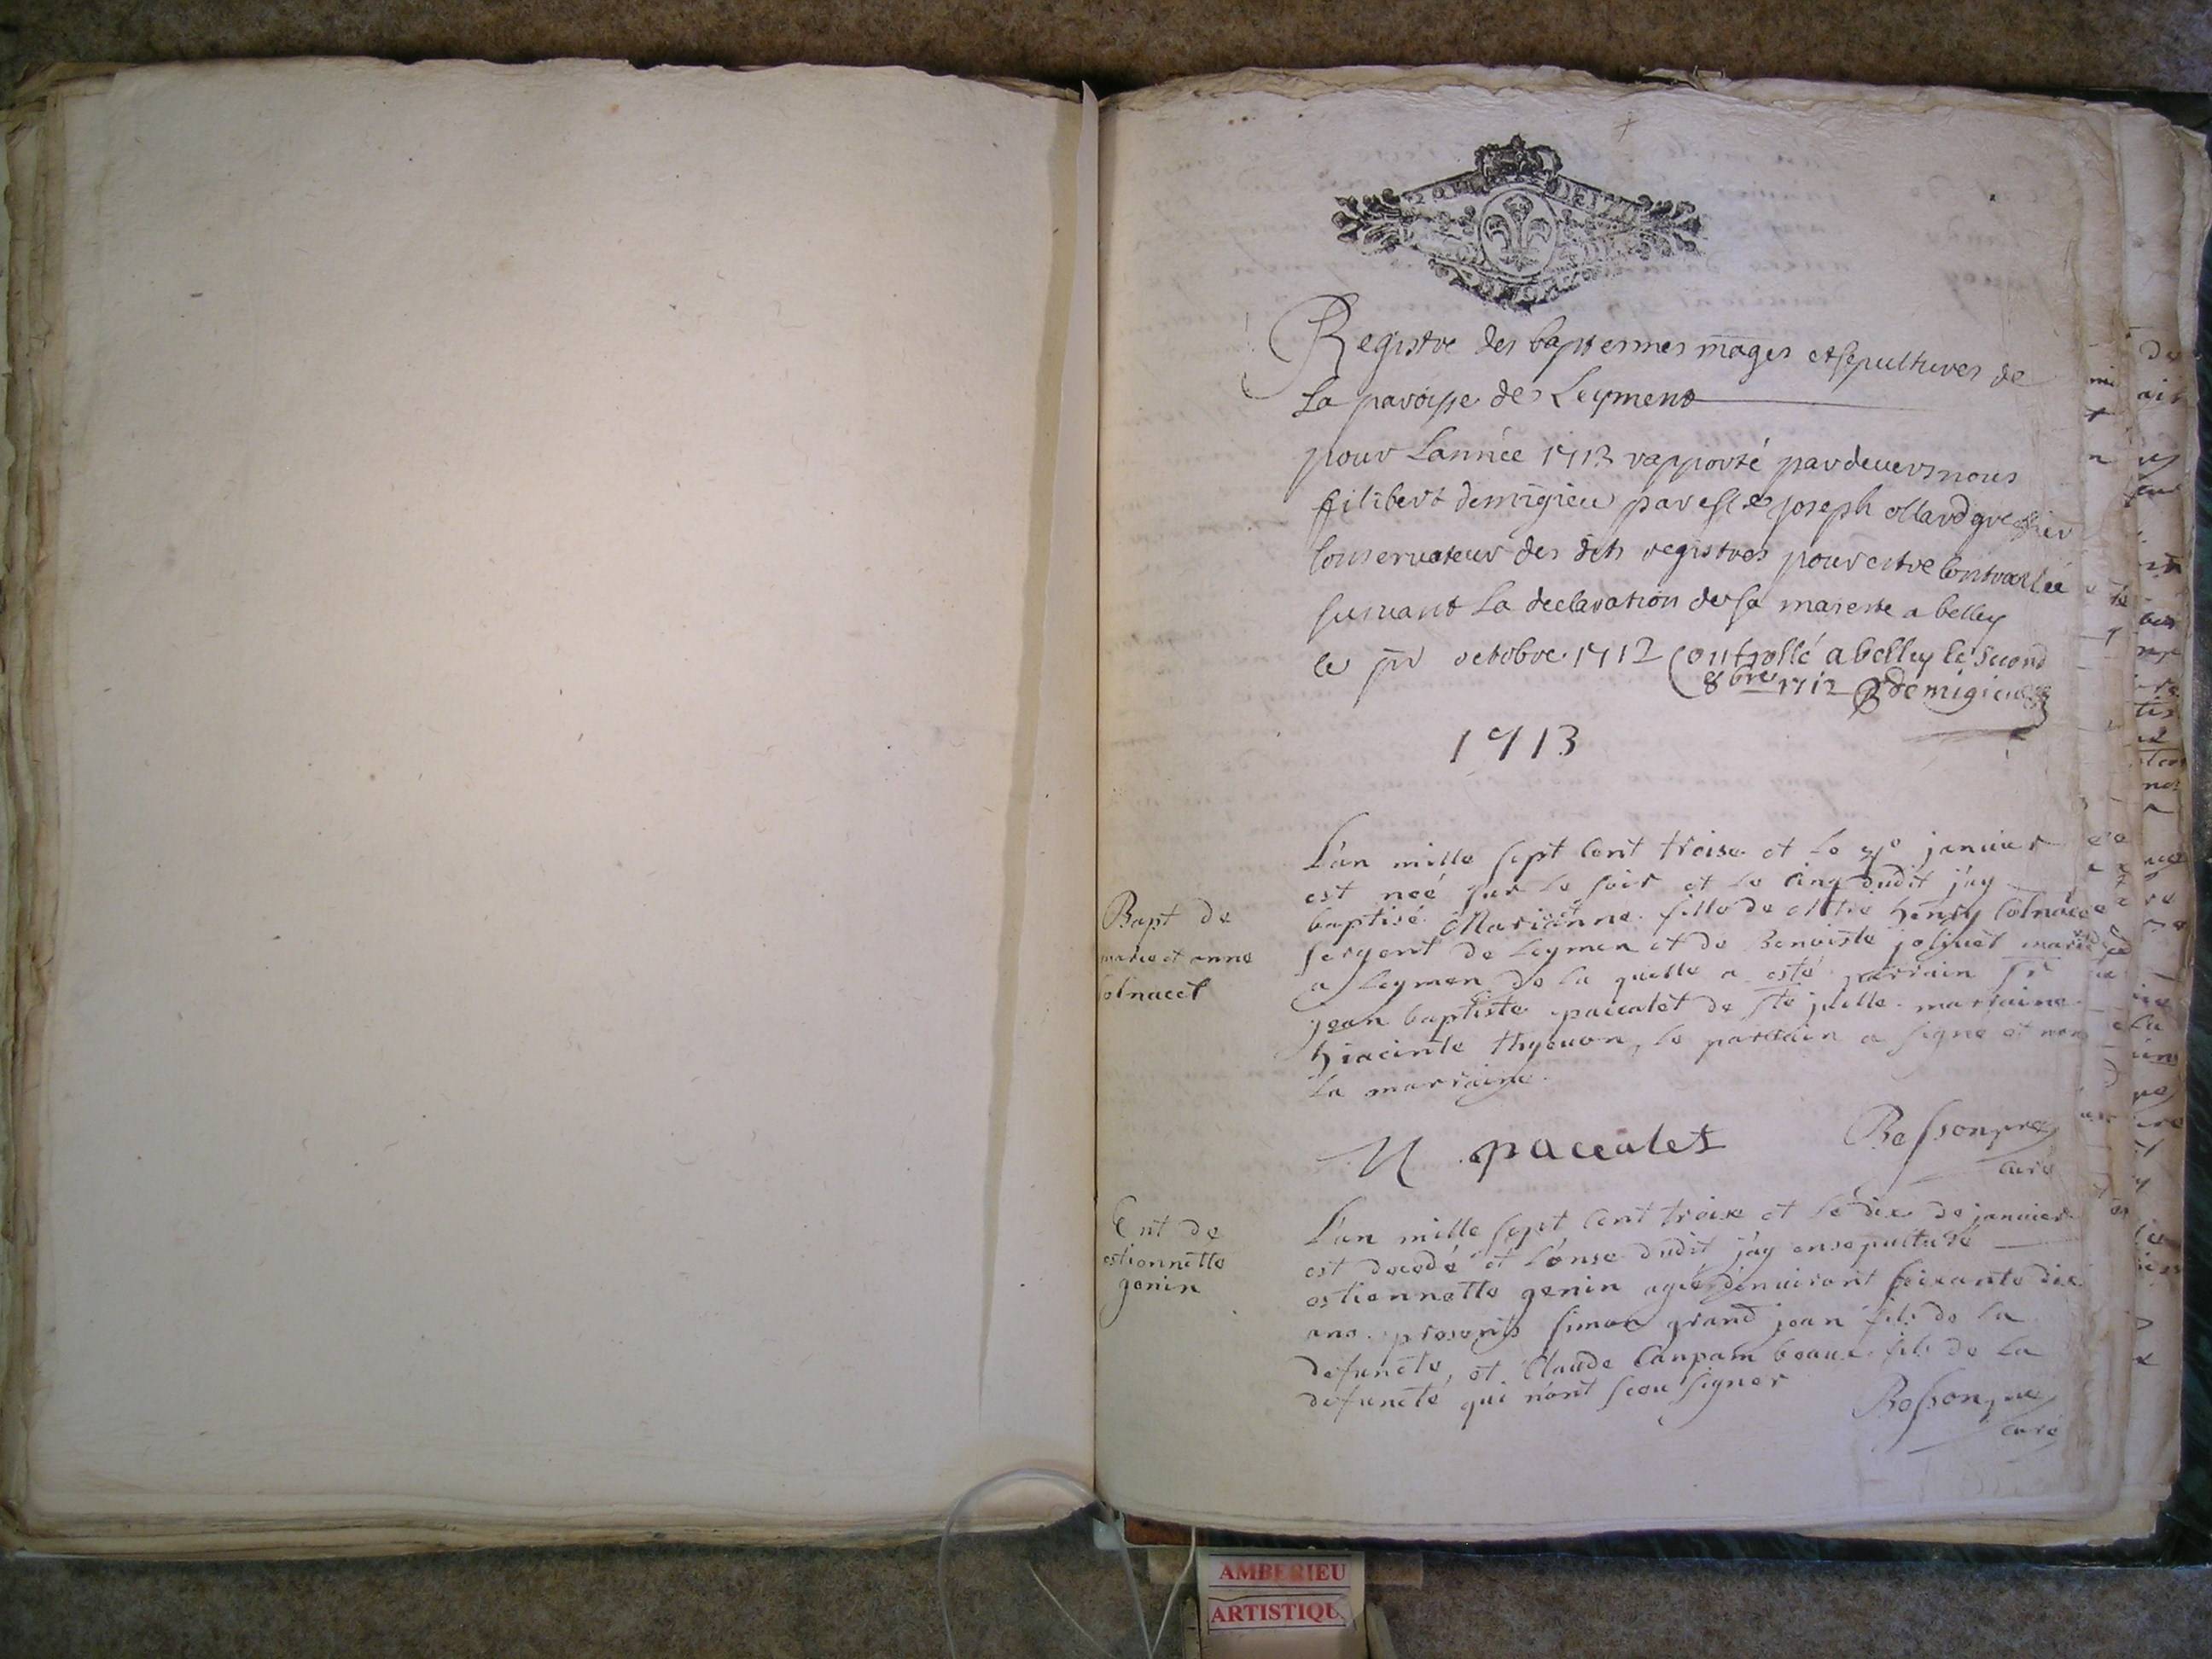 Registre des baptesmes mages et sepultures de
La paroisse de Leyment
pour Lannée 1713 rapporté pardevers nous
filibert demigieu par Joseph ollard greffier
Conservateur des dits registres pour estre Controllée
suivant La declaration de sa majeste a belley
le pr octobre 1712 Controllé a belley le second
8bre 1712 demigieu
1713
L'an mille sept cent treise et le janvier
est neé sur le soir et le cinq dudit j'ay
Bapt de
marie et anne
Colnacet
baptisé Marianne fille de Mtre henry Colnacet
sergent de Leymen et de Benoiste joliuet mariés
a Leymen de la quelle a esté parrain Sr
jean baptiste paccalet de Ste julle marraine
hiacinte thyeuon, le parrain a signe et non
la marraine.
paccalet
Besson pre
curé
Ent de
estiennette
genin
L'an mille sept cent treise et le dix de janvier
est decedé et l'onse dudit j'ay ensepulturé
estiennette genin ageé d'enuiront soixante dix
ans. presents simon grand jean fils de la
defuncte, et Claude Canpam beaux fils de la
defuncte qui n'ont sceu signer
Besson pre
curé
AMBERIEU
ARTISTIQU